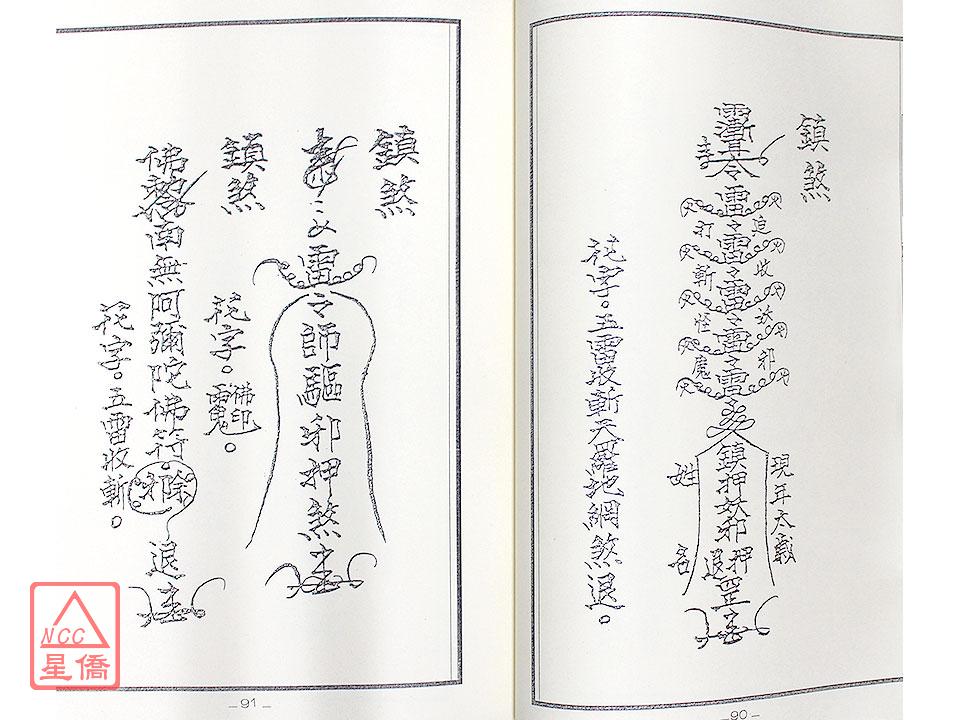 鎮煞
雷令雷令雷令雷令雷令
追收妖邪
打斬怪魔
鎮押妖邪押退罡
現年太歲
姓名
花字。五雷收斬天羅地網煞退。
鎮煞
雷令師驅邪押煞
花字。佛印
鎮煞
佛
南無阿彌陀佛符除邪退
花字。五雷收斬。
_90_
_91_
NCC
星僑